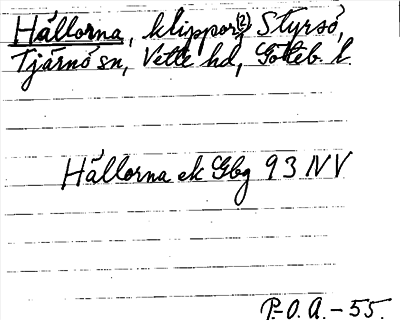 Hållorna, klippor (2) Styrsö,
Tjärnö sn, Vette hd, Göteb. l.
Hållorna ek Gbg 93 NV
P.O.A. - 55.